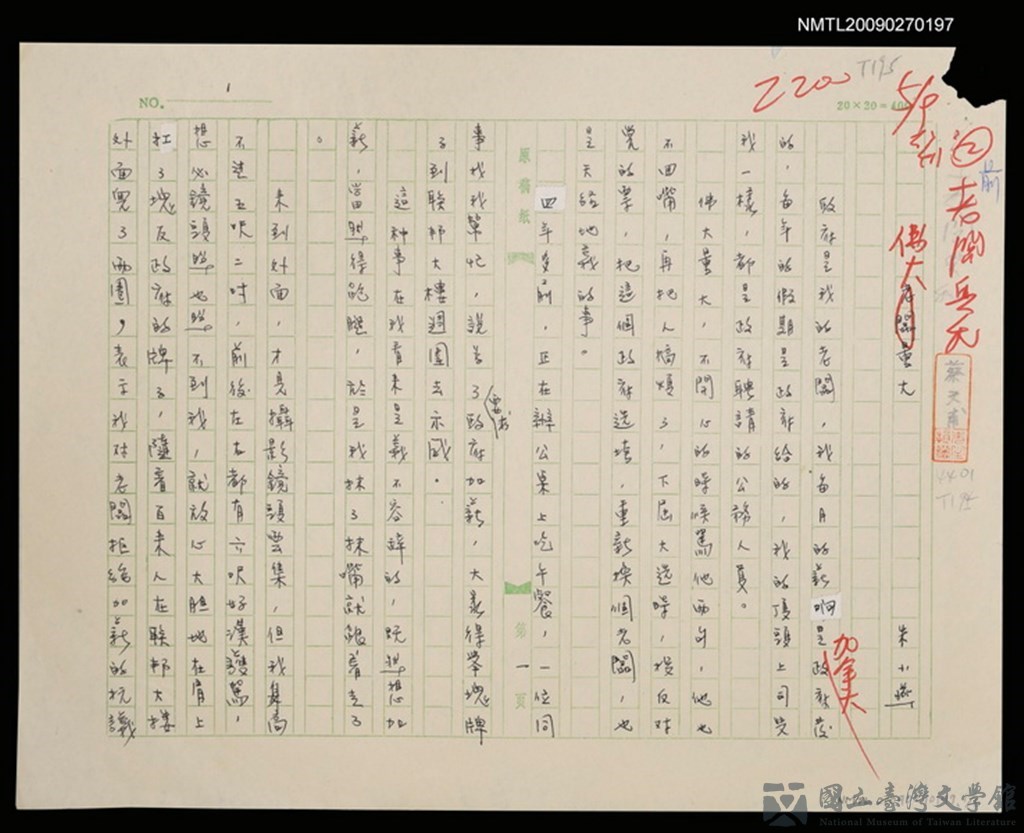 NMTL20090270197
T195
2200
20×20=400
NO. 1
前
老闆無
偉大
老闆量大
蔡文甫
4401
T195
朱小燕
加拿大
政府是我的老闆,我每月的薪餉是政府發
的,每年的假期是政府給的,我的頂頭上司跟
我一樣,都是政府聘請的公務人員。
佛大量大,不開心的時候罵他兩句,他也
不回嘴,再把人搞煩了,下屆大選時,投反對
黨的票,把這個政府選掉,重新換個老闆,也
是天經地義的事。
四年多前,正在辦公桌上吃午餐,一位同
原稿紙
第一頁
事找我幫忙,說為了要求政府加薪,大家得舉塊牌
子到聯邦大樓週圍去示威。
這種事在我看來是義不容辭的,既然想加
薪,當然得跑腿,於是我抹了抹嘴就跟着走了
。
來到外面,才見攝影鏡頭雲集,但我身高
不達五呎二吋,前後左右都有六呎好漢護駕,
想必鏡頭照也照不到我,就放心大膽地在肩上
扛了塊反政府的牌子,隨着百來人在聯邦大樓
外面兜了兩圈,表示我對老闆拒絕加薪的抗議
國立臺灣文學館
National Museum of Taiwan Literature